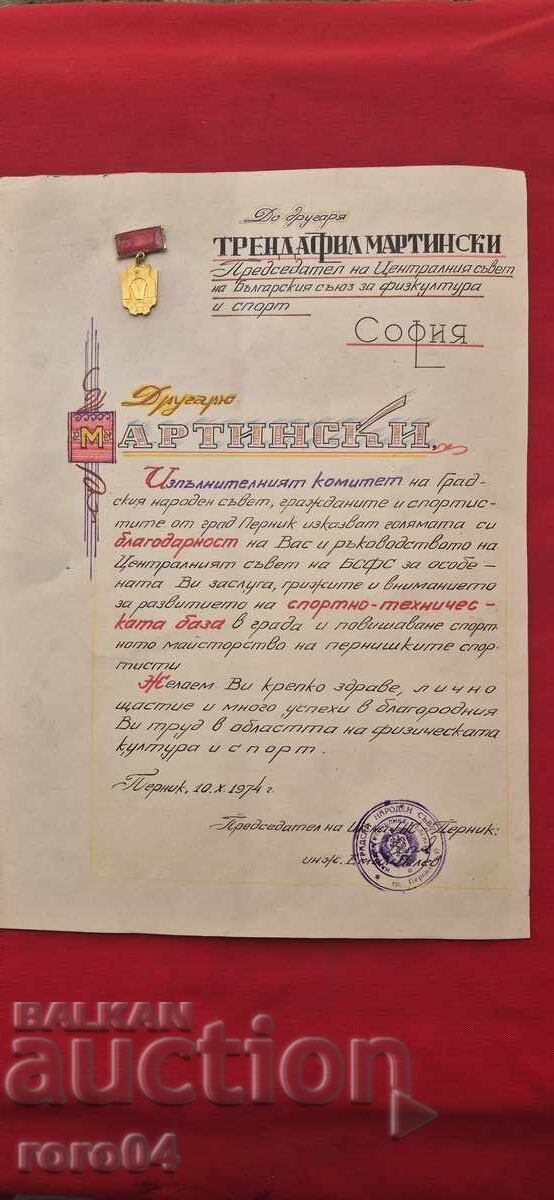 До другаря
ТРЕНДАФИЛ МАРТИНСКИ
Председател на Централния съвет
на Български съюз за физкултура
и спорт
СОФИЯ
Другарю
МАРТИНСКИ,
Изпълнителният комитет на Град-
ския народен съвет, гражданите и спортис-
тите от град Перник изказват голямата си
благодарност на Вас и ръководството на
Централният съвет на БСФС за особе-
ната Ви заслуга, грижите и вниманието
за развитието на спортно-техничес-
ката база в града и повишаване спорт-
ното майсторство на пернишките спор-
тисти
Желаем Ви крепко здраве, лично
щастие и много успехи в благородния
Ви труд в областта на физическата
култура и спорт.
Перник, 10.X.1974 г.
Председател на Перник:
инж.
ГРАДСКИ НАРОДЕН СЪВЕТ
BALKAN
auction
roro04